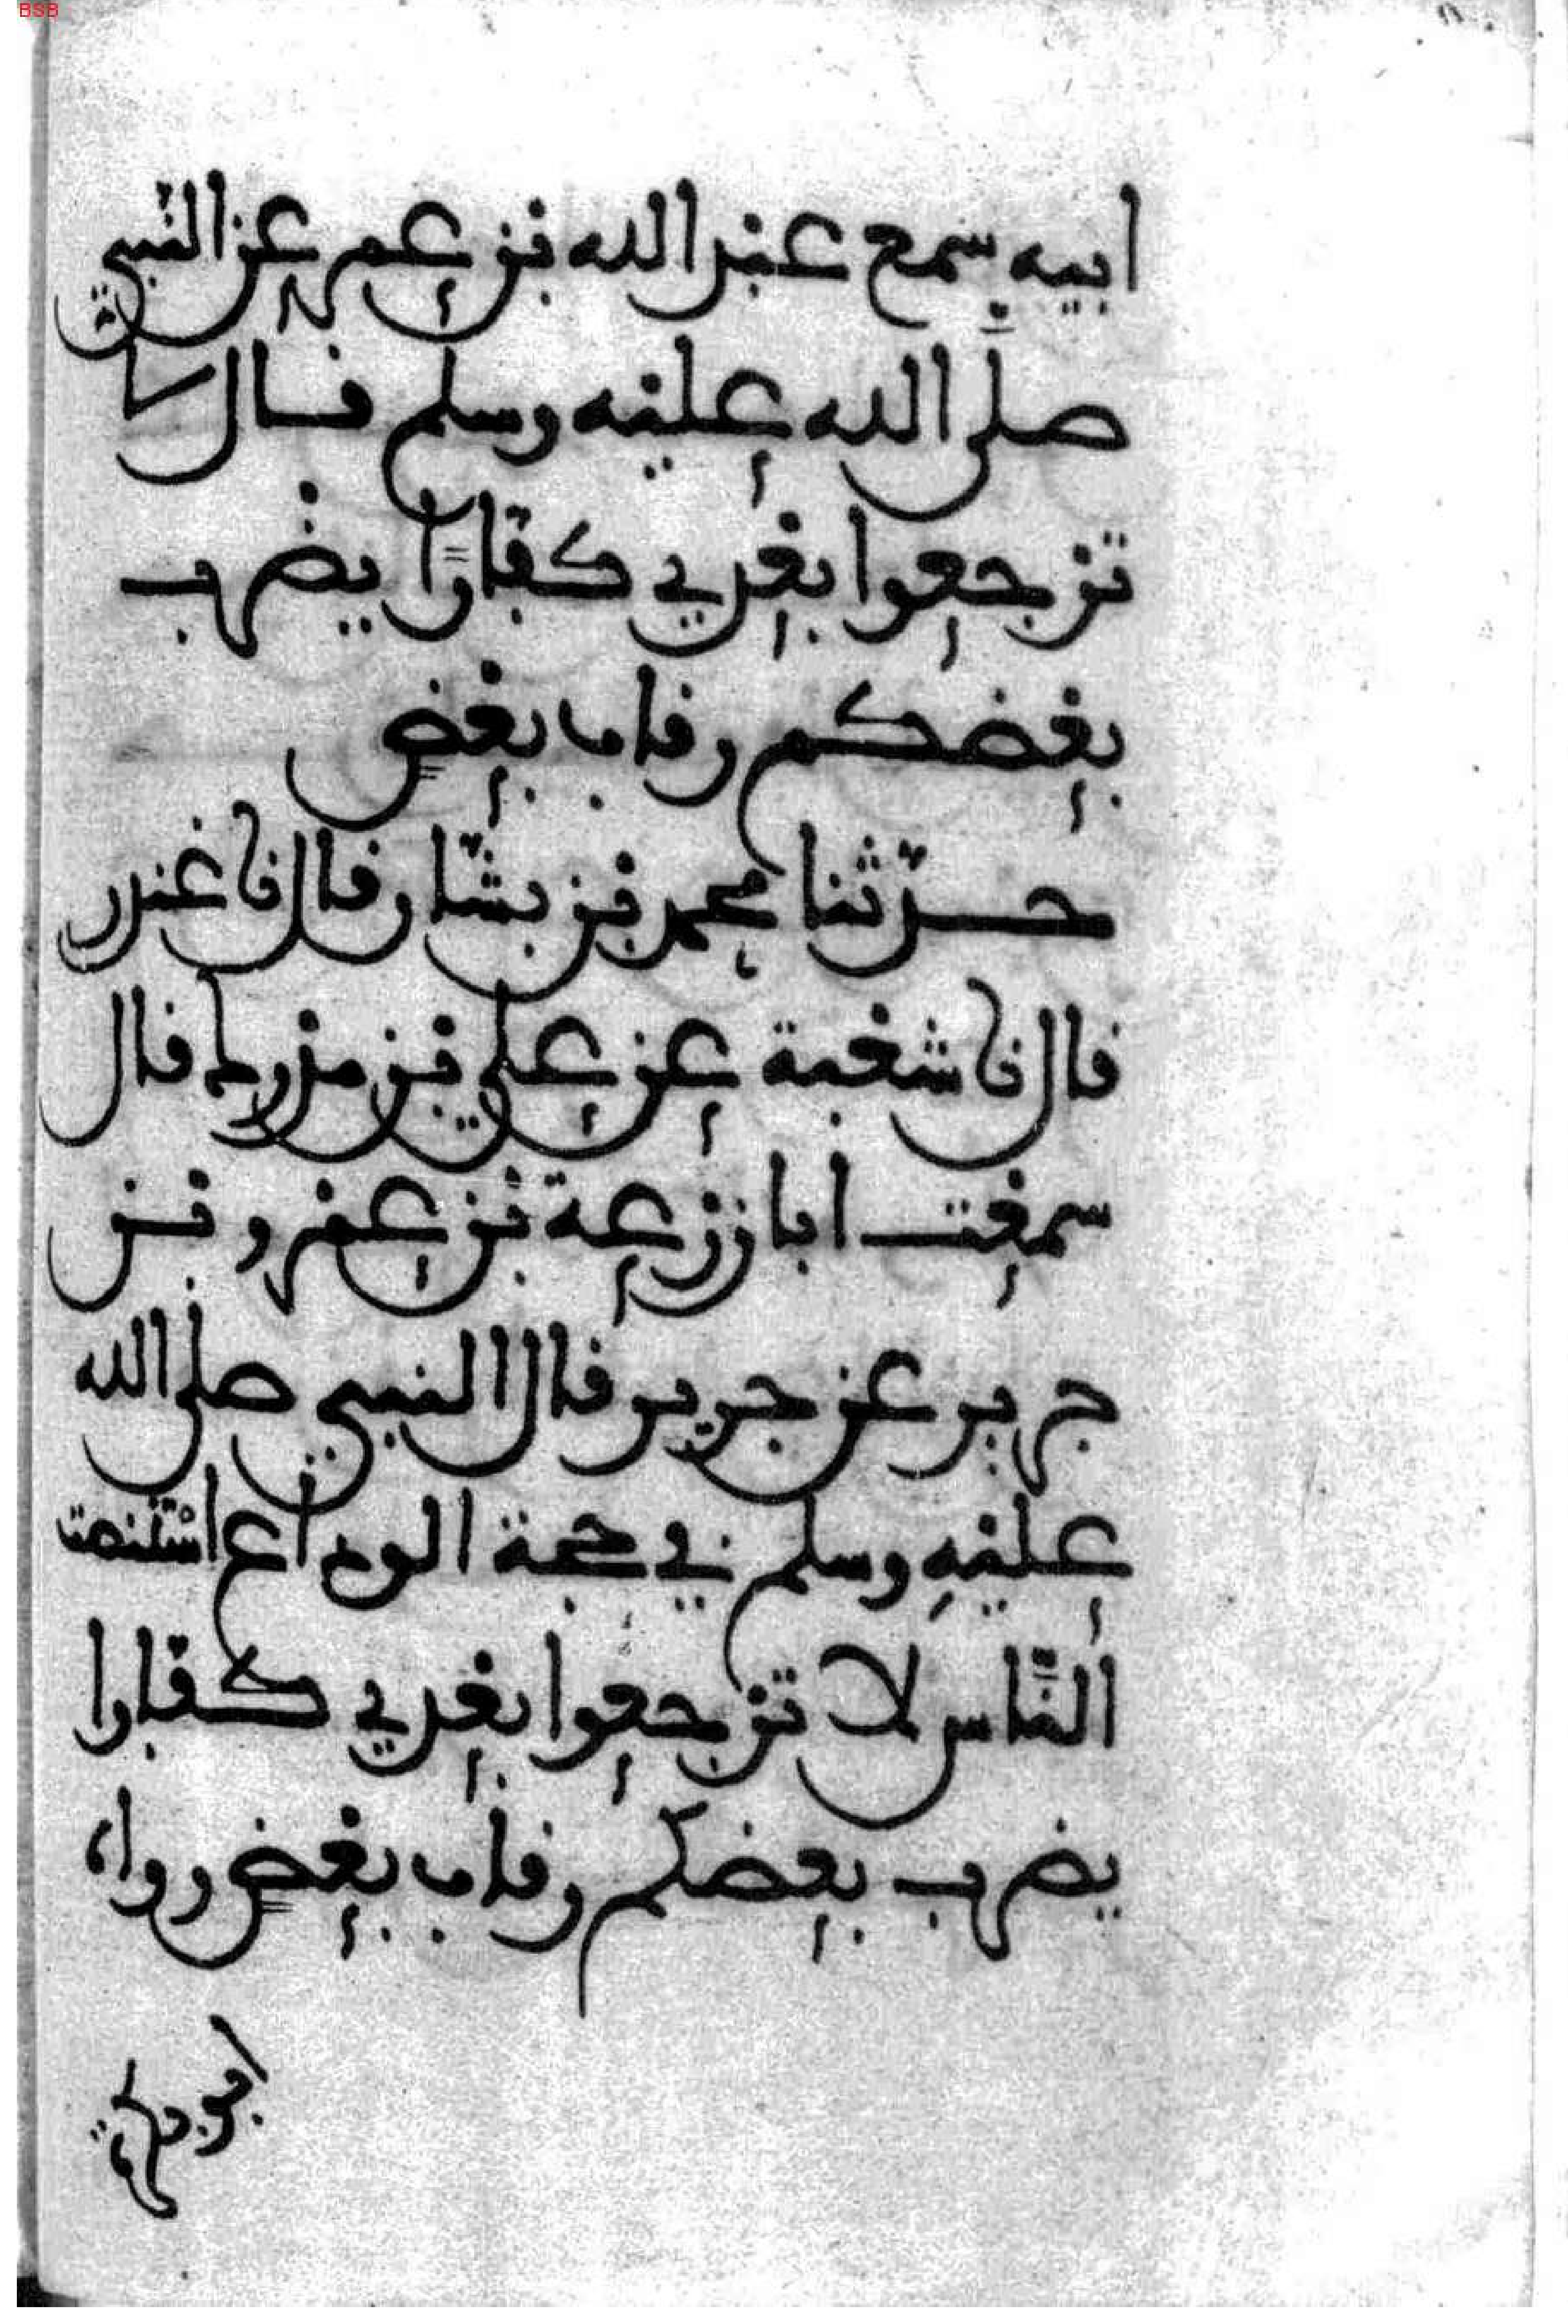 BSB
ابيه سمع عبد الله بن عمر عن النبي
صلى الله عليه وسلم قال لا
ترجعوا بعدي كفارا يضرب
بعضكم رقاب بعض
حدثنا محمد بن بشار قال نا غندر
قال نا شعبة عن علي بن مدرك قال
سمعت ابا زرعة بن عمرو بن
جرير عن جرير قال النبي صلى الله
عليه وسلم في حجة الوداع استنصت
الناس لا ترجعوا بعدي كفارا
يضرب بعضكم رقاب بعض رواه
ابو بكرة